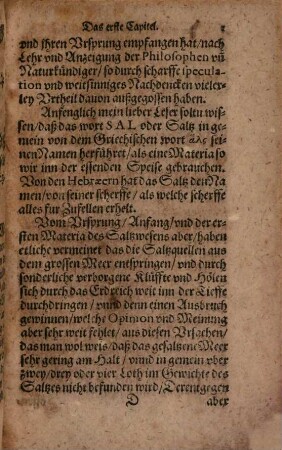 Das erste Capitel. 1
vnd jhren Vrsprung empfangen hat/nach
Lehr vnd Anzeigung der Philosophen vñ
Naturkündiger/so durch scharffe specula-
tion vnd weitsinniges Nachdencken vieler-
ley Vrtheil dauon außgegossen haben.
Anfenglich mein lieber Leser soltu wis-
sen/daß das wort SAL oder Saltz in ge-
mein von dem Griechischen wort ἅλς sei-
nen Namen herführet/als eine Materia so
wir inn der essenden Speise gebrauchen.
Von den Hebræern hat das Saltz den Na-
men/von seiner scherffe/als welche scherffe
alles für Zufellen erhelt.
Vom Vrsprung/Anfang/vnd der er-
sten Materia des Saltzwesens aber/haben
etliche vermeinet das die Saltzquellen aus
dem grossen Meer entspringen/vnd durch
sonderliche verborgene Klüffte vnd Hölen
sich durch das Erdreich weit inn der Tieffe
durchdringen/vnnd denn einen Ausbruch
gewinnen/welche Opinion vnd Meinung
aber sehr weit fehlet/aus diesen Vrsachen/
das man wol weis/daß das gesaltzene Meer
sehr gering am Halt/vnnd in gemein vber
zwey/drey oder vier Loth im Gewichte des
Saltzes nicht befunden wird/Derentgegen
D aber